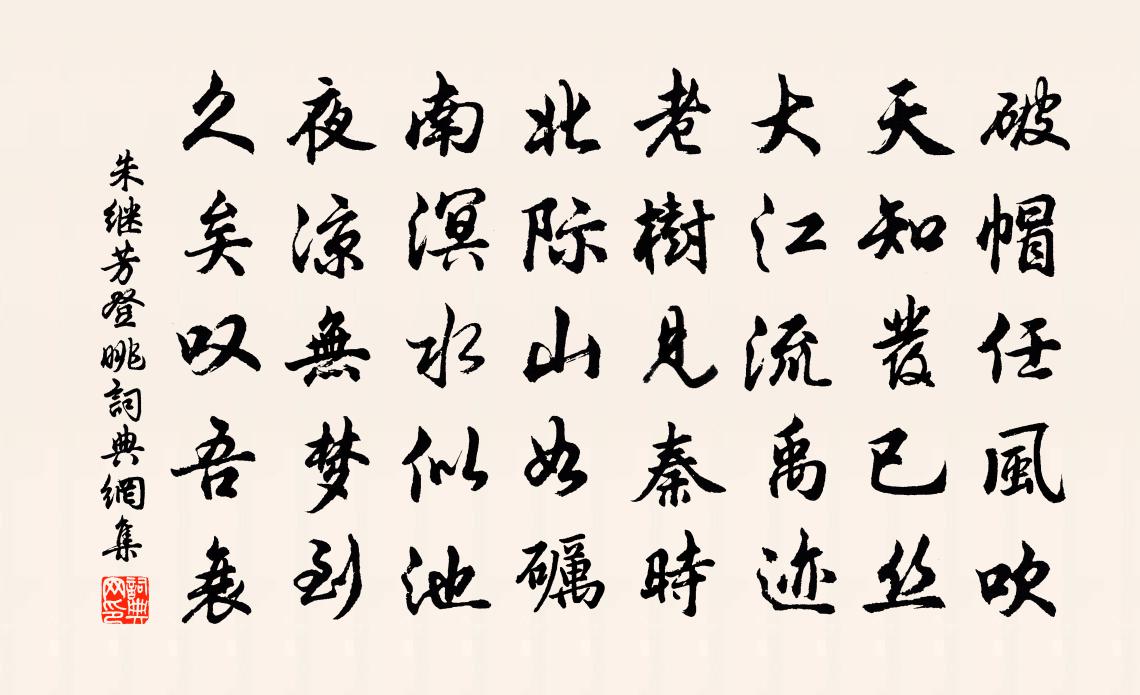 破帽任風吹
天知發已丝
大江流禹迹
老樹見秦時
北际山如礪
南溟水似池
夜凉無梦到
久矣叹吾衰
朱继芳登眺詞典網集
詞典
网印